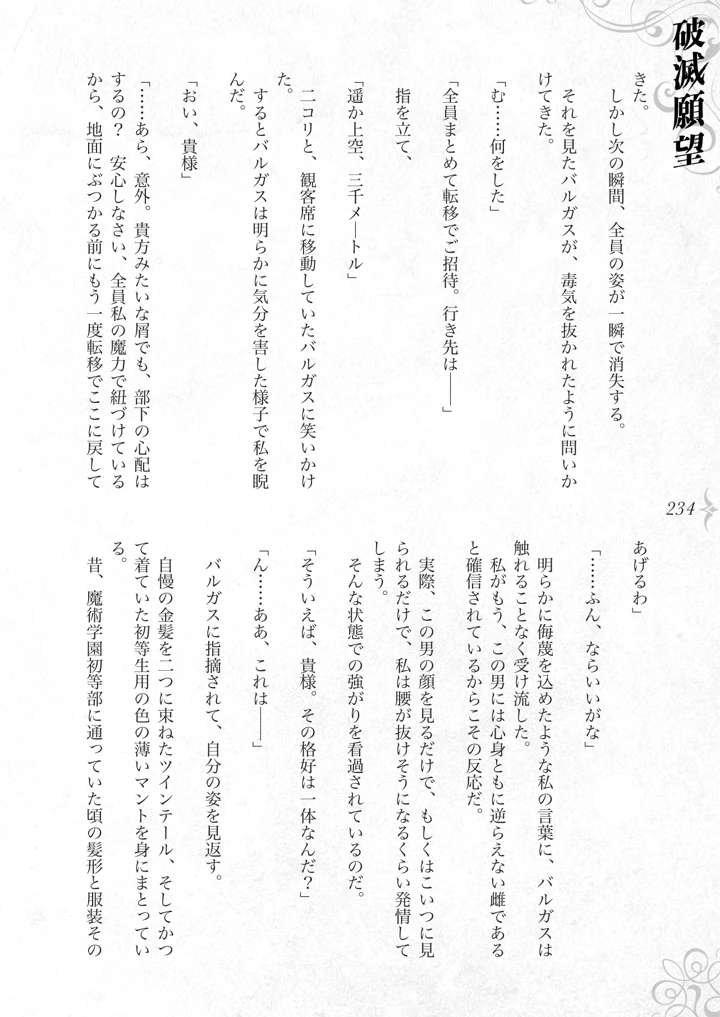 破滅願望
きた。
しかし次の瞬間、全員の姿が一瞬で消失する。
それを見たバルガスが、毒気を抜かれたように問いか
けてきた。
「む……何をした」
「全員まとめて転移でご招待。行き先は――」
指を立て、
「遥か上空、三千メートル」
ニコリと、観客席に移動していたバルガスに笑いかけ
た。
するとバルガスは明らかに気分を害した様子で私を睨
んだ。
「おい、貴様」
「……あら、意外。貴方みたいな屑でも、部下の心配は
するの？　安心しなさい、全員私の魔力で紐づけている
から、地面にぶつかる前にもう一度転移でここに戻して
あげるわ」
「……ふん、ならいいがな」
明らかに侮蔑を込めたような私の言葉に、バルガスは
触れることなく受け流した。
私がもう、この男には心身ともに逆らえない雌である
と確信されているからこその反応だ。
実際、この男の顔を見るだけで、もしくはこいつに見
られるだけで、私は腰が抜けそうになるくらい発情して
しまう。
そんな状態での強がりを看過されているのだ。
「そういえば、貴様。その格好は一体なんだ？」
「ん……ああ、これは――」
バルガスに指摘されて、自分の姿を見返す。
自慢の金髪を二つに束ねたツインテール、そしてかつ
て着ていた初等生用の色の薄いマントを身にまとってい
る。
昔、魔術学園初等部に通っていた頃の髪形と服装その
234